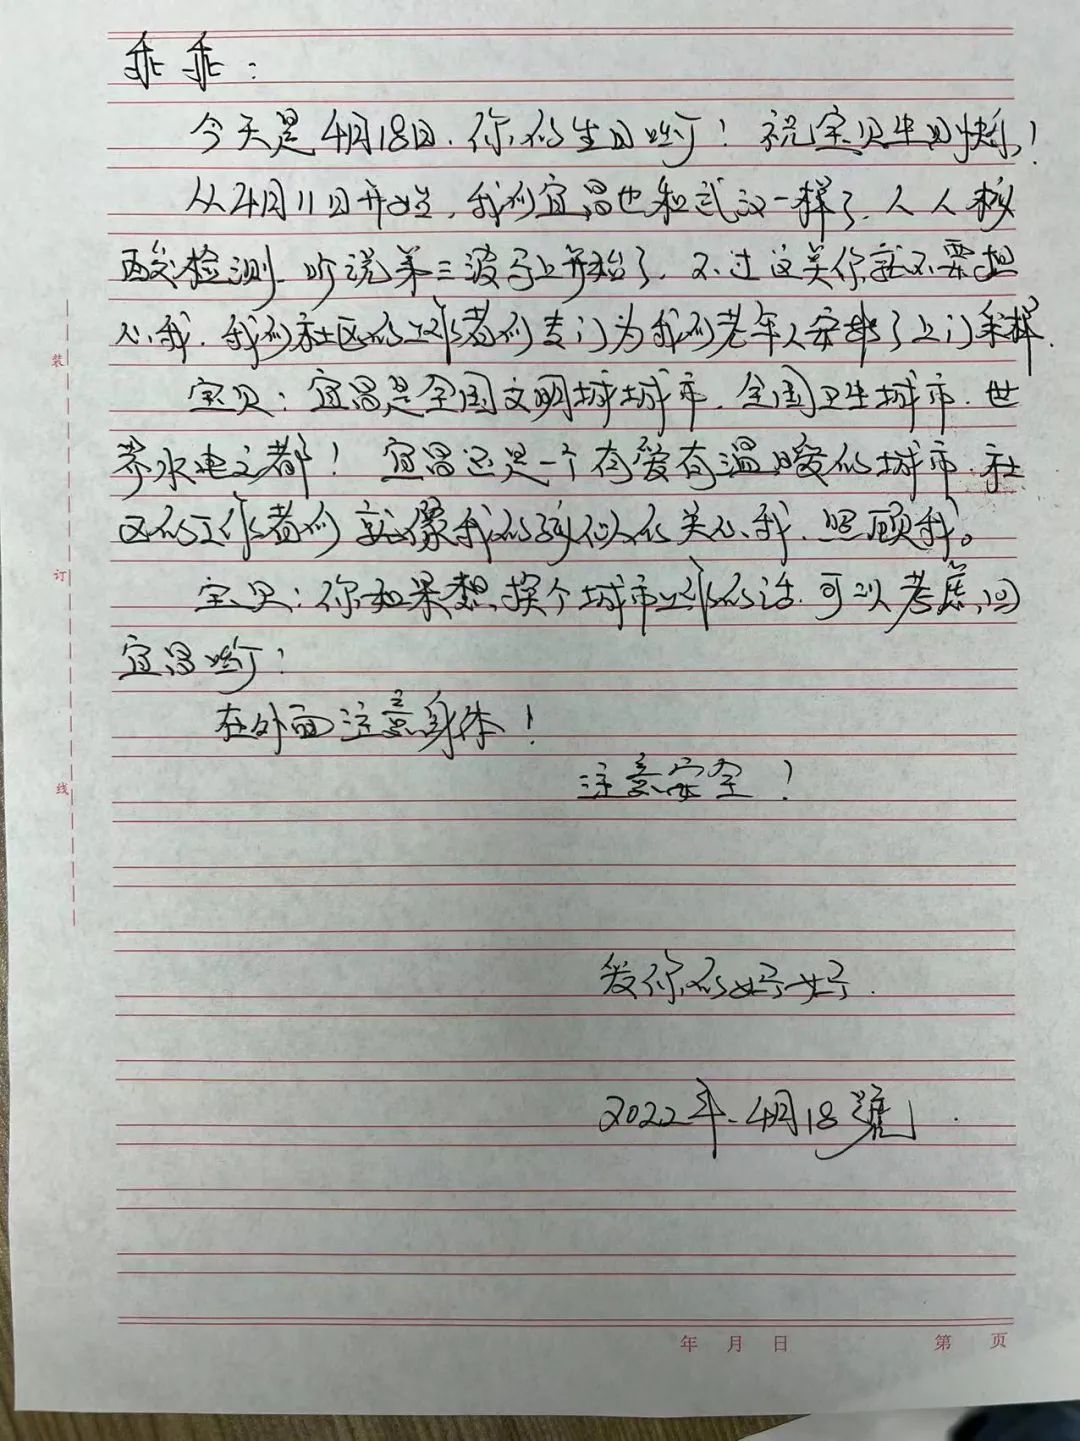 乖乖:
今天是4月18日.你的生日哟!祝宝贝生日快乐!
从4月11日开始,我们宜昌也和武汉一样了.人人核
酸检测.听说第三波马上开始了.不过这关你就不要担
心我.我们社区的工作者们专门为我们老年人安排了上门采样.
宝贝:宜昌是全国文明城城市.全国卫生城市.世
界水电之都!宜昌还是一个有爱有温暖的城市.社
区的工作者们就像我的 关心我.照顾我。
宝贝:你如果想换个城市工作的话.可以考虑回
宜昌哟!
在外面注意身体!
注意安全!
爱你的好好.
2022年.4月18号.
装
订
线
年 月 日 第 页